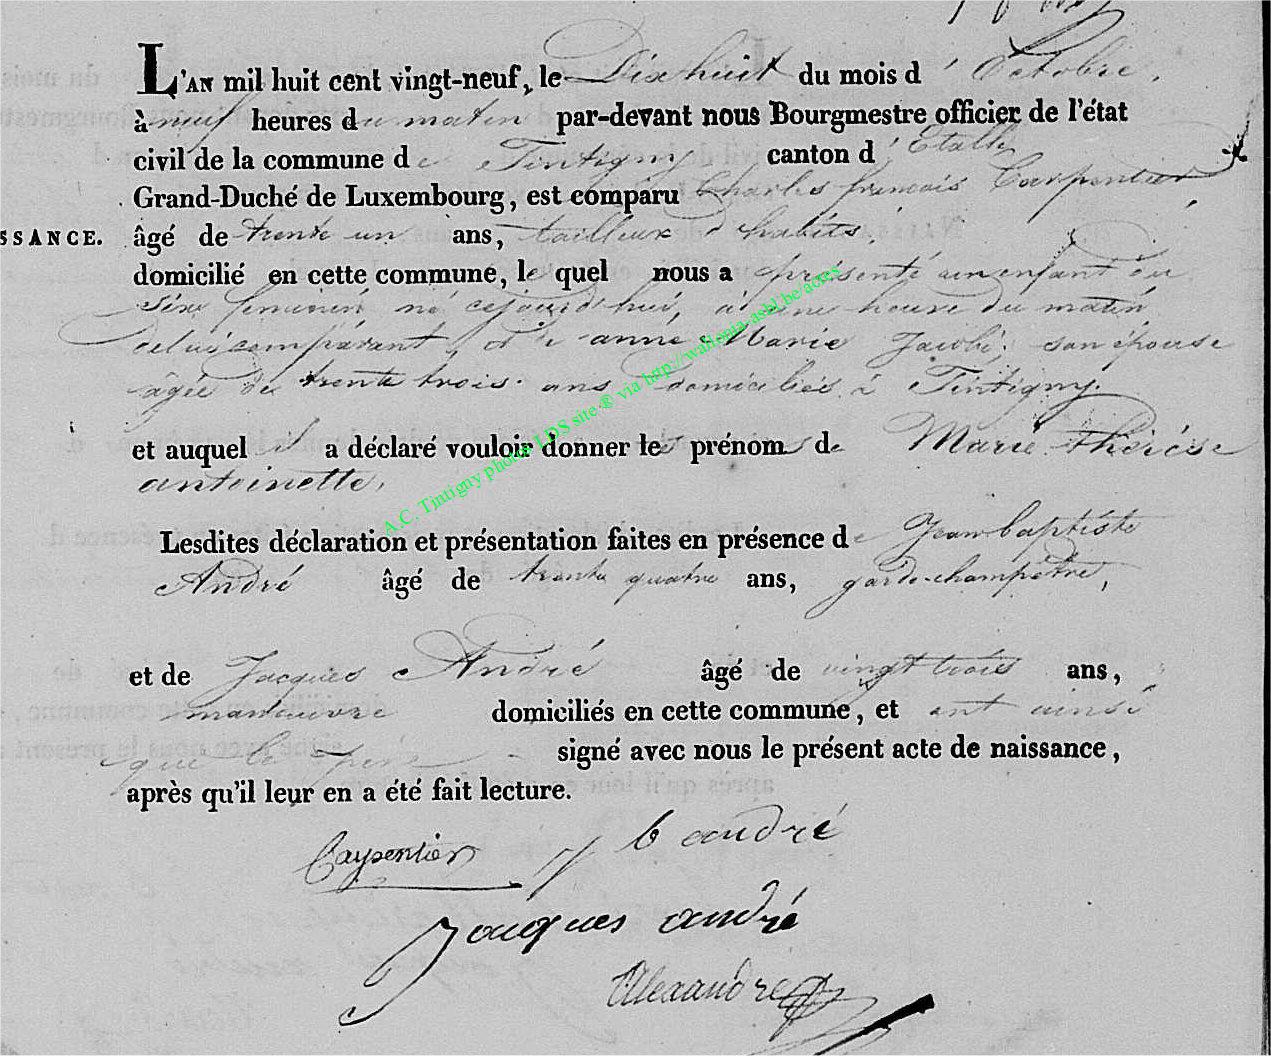 L'AN mil huit cent vingt-neuf, le Dix huit du mois d' Octobre,
à neuf heures du matin par-devant nous Bourgmestre officier de l'état
civil de la commune de Tintigny canton d' Etalle
Grand-Duché de Luxembourg, est comparu Charles françois Carpentier
SSANCE. âgé de trente un ans, tailleur d'habits,
domicilié en cette commune, le quel nous a présenté un enfant du
sexe feminin né cejourd'hui, à une heure du matin
de lui comparant, et de anne Marie Jacobi, son épouse
âgée de trente trois ans domiciliés à Tintigny.
et auquel il a déclaré vouloir donner les prénoms de Marie thérèse
antoinette,
Lesdites déclaration et présentation faites en présence de Jean baptiste
André âgé de trente quatre ans, garde-champêtre,
et de Jacques André âgé de vingt trois ans,
manœuvre domiciliés en cette commune, et ont ainsi
que le père signé avec nous le présent acte de naissance,
après qu'il leur en a été fait lecture.
Carpentier J b andré
Jacques andré
Alexandre
A.C. Tintigny photos LDS site ® via http://wallonia-asbl.be/actes